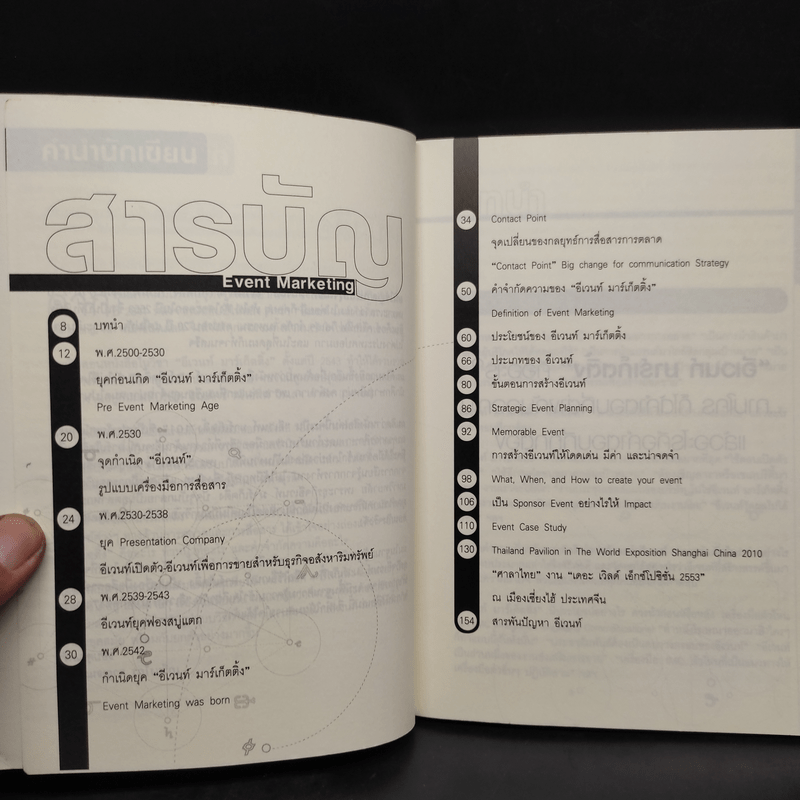 สารบัญ
Event Marketing
8 บทนำ
12 พ.ศ.2500-2530
ยุคก่อนเกิด "อีเวนท์ มาร์เก็ตติ้ง"
Pre Event Marketing Age
20 พ.ศ.2530
จุดกำเนิด "อีเวนท์"
รูปแบบเครื่องมือการสื่อสาร
24 พ.ศ.2530-2538
ยุค Presentation Company
อีเวนท์เปิดตัว-อีเวนท์เพื่อการขายสำหรับธุรกิจอสังหาริมทรัพย์
28 พ.ศ.2539-2543
อีเวนท์ยุคฟองสบู่แตก
30 พ.ศ.2542
กำเนิดยุค "อีเวนท์ มาร์เก็ตติ้ง"
Event Marketing was born
34 Contact Point
จุดเปลี่ยนของกลยุทธ์การสื่อสารการตลาด
"Contact Point" Big change for communication Strategy
50 คำจำกัดความของ "อีเวนท์ มาร์เก็ตติ้ง"
Definition of Event Marketing
60 ประโยชน์ของ อีเวนท์ มาร์เก็ตติ้ง
66 ประเภทของ อีเวนท์
80 ขั้นตอนการสร้างอีเวนท์
86 Strategic Event Planning
92 Memorable Event
การสร้างอีเวนท์ให้โดดเด่น มีค่า และน่าจดจำ
98 What, When, and How to create your event
106 เป็น Sponsor Event อย่างไรให้ Impact
110 Event Case Study
130 Thailand Pavilion in The World Exposition Shanghai China 2010
"ศาลาไทย" งาน "เดอะ เวิลด์ เอ็กซ์โปซิชั่น 2553"
ณ เมืองเซี่ยงไฮ้ ประเทศจีน
154 สารพันปัญหา อีเวนท์